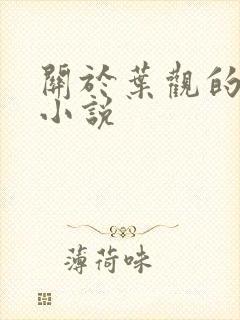 關於葉觀的
小說
薄荷味